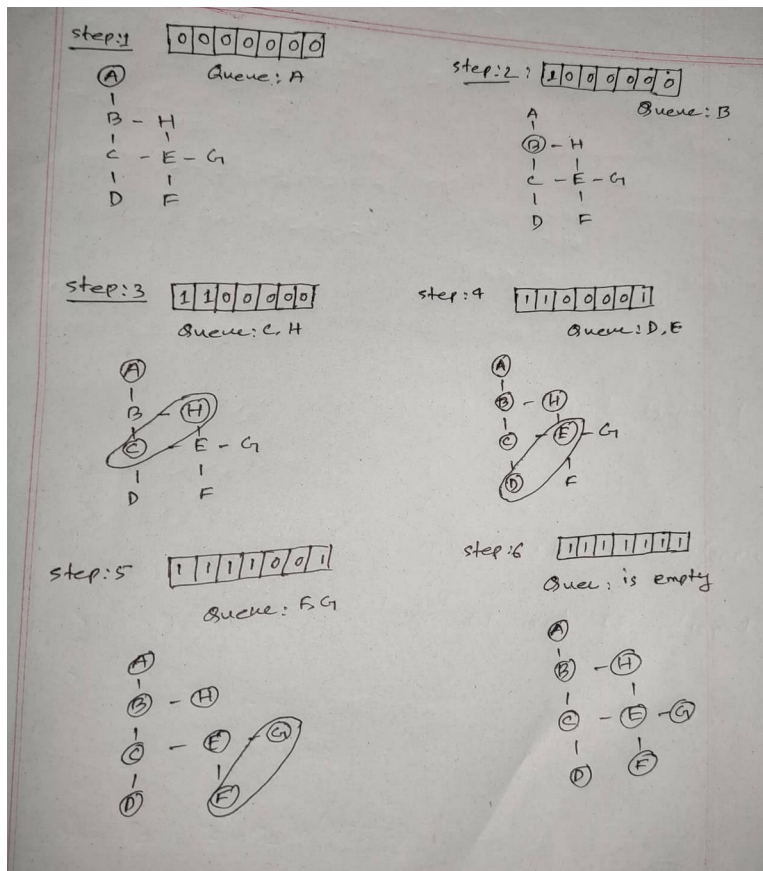 step:1 0 0 0 0 0 0 0
Queue: A
A
B - H
C - E - G
D F
step:2: 1 0 0 0 0 0 0
Queue: B
A
B - H
C - E - G
D F
step:3 1 1 0 0 0 0 0
Queue: C, H
A
B - H
C - E - G
D F
step:4 1 1 0 0 0 0 1
Queue: D, E
A
B - H
C - E - G
D F
step:5 1 1 1 1 0 0 1
Queue: F, G
A
B - H
C - E - G
D F
step:6 1 1 1 1 1 1 1
Quee: is empty
A
B - H
C - E - G
D F